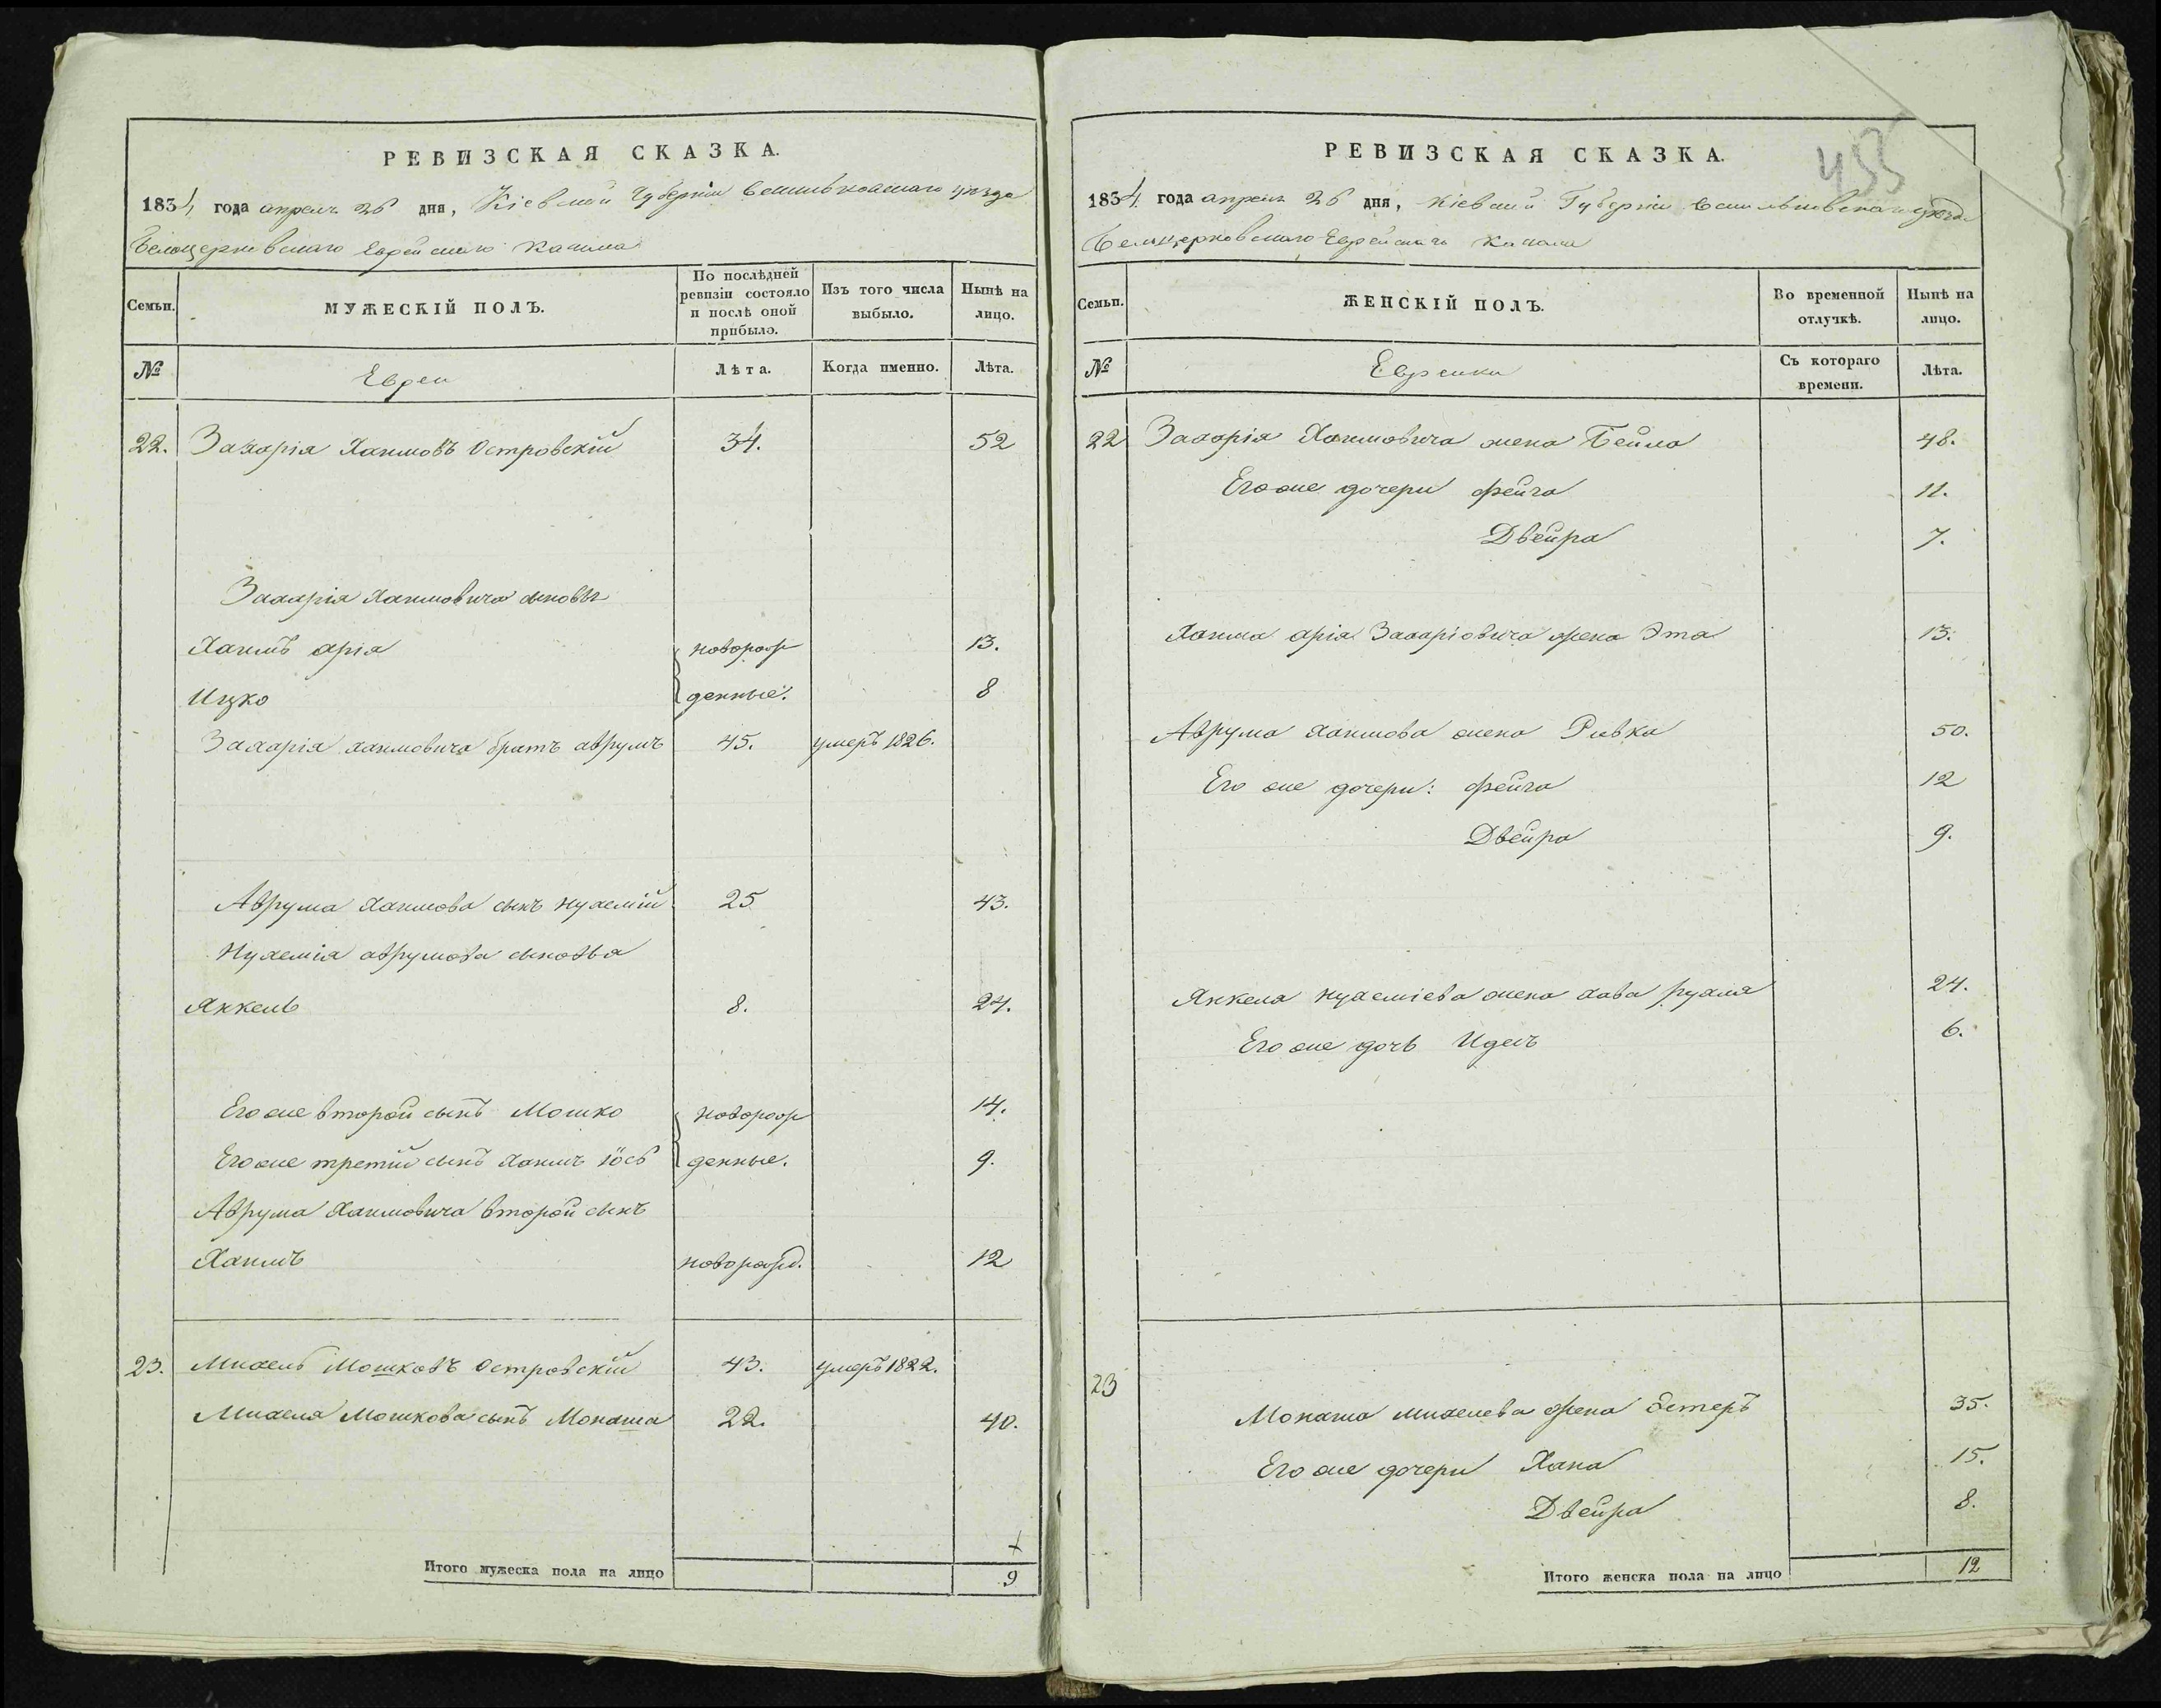 РЕВИЗСКАЯ СКАЗКА.
1834 года апреля 26 дня, Кіевской Губерніи Васильковскаго уѣзда
Белоцерковскаго Еврейскаго Кагала
Семьи.
МУЖЕСКІЙ ПОЛЪ.
По послѣдней ревизіи состояло и послѣ оной прибыло.
Изъ того числа выбыло.
Нынѣ на лицо.
№
Евреи
Лѣта.
Когда именно.
Лѣта.
22. Захарія Хаимовъ Островскій 34. 52
Захарія Хаимовича сыновья
Хаимъ Арія новорож 13.
Ицко денные. 8
Захарія Хаимовича братъ Аврумъ 45. умеръ 1826.
Аврума Хаимова сынъ Нухемій 25 43.
Нухемія Аврумова сыновья
Янкель 8. 24.
Его же второй сынъ Мошко новорож 14.
Его же третій сынъ Хаимъ Іось денные. 9.
Аврума Хаимовича второй сынъ
Хаимъ новорожд. 12
23. Михель Мошковъ Островскій 43. умеръ 1822.
Михеля Мошкова сынъ Монаша 22. 40.
Итого мужеска пола на лицо 9
453
РЕВИЗСКАЯ СКАЗКА.
1834 года апреля 26 дня, Кіевской Губерніи Васильковскаго уѣзда
Белоцерковскаго Еврейскаго Кагала
Семьи.
ЖЕНСКІЙ ПОЛЪ.
Во временной отлучкѣ.
Нынѣ на лицо.
№
Еврейки
Съ котораго времени.
Лѣта.
22 Захарія Хаимовича жена Бейла 48.
Его же дочери Фейга 11.
Двейра 7.
Хаима Арія Захаріовича жена Эта 13.
Аврума Хаимова жена Ривка 50.
Его же дочери: Фейга 12
Двейра 9.
Янкеля Нухеміева жена Хава Рухля 24.
Его же дочь Идесъ 6.
23
Монаша Михелева жена Эстеръ 35.
Его же дочери Хана 15.
Двейра 8.
Итого женска пола на лицо 12